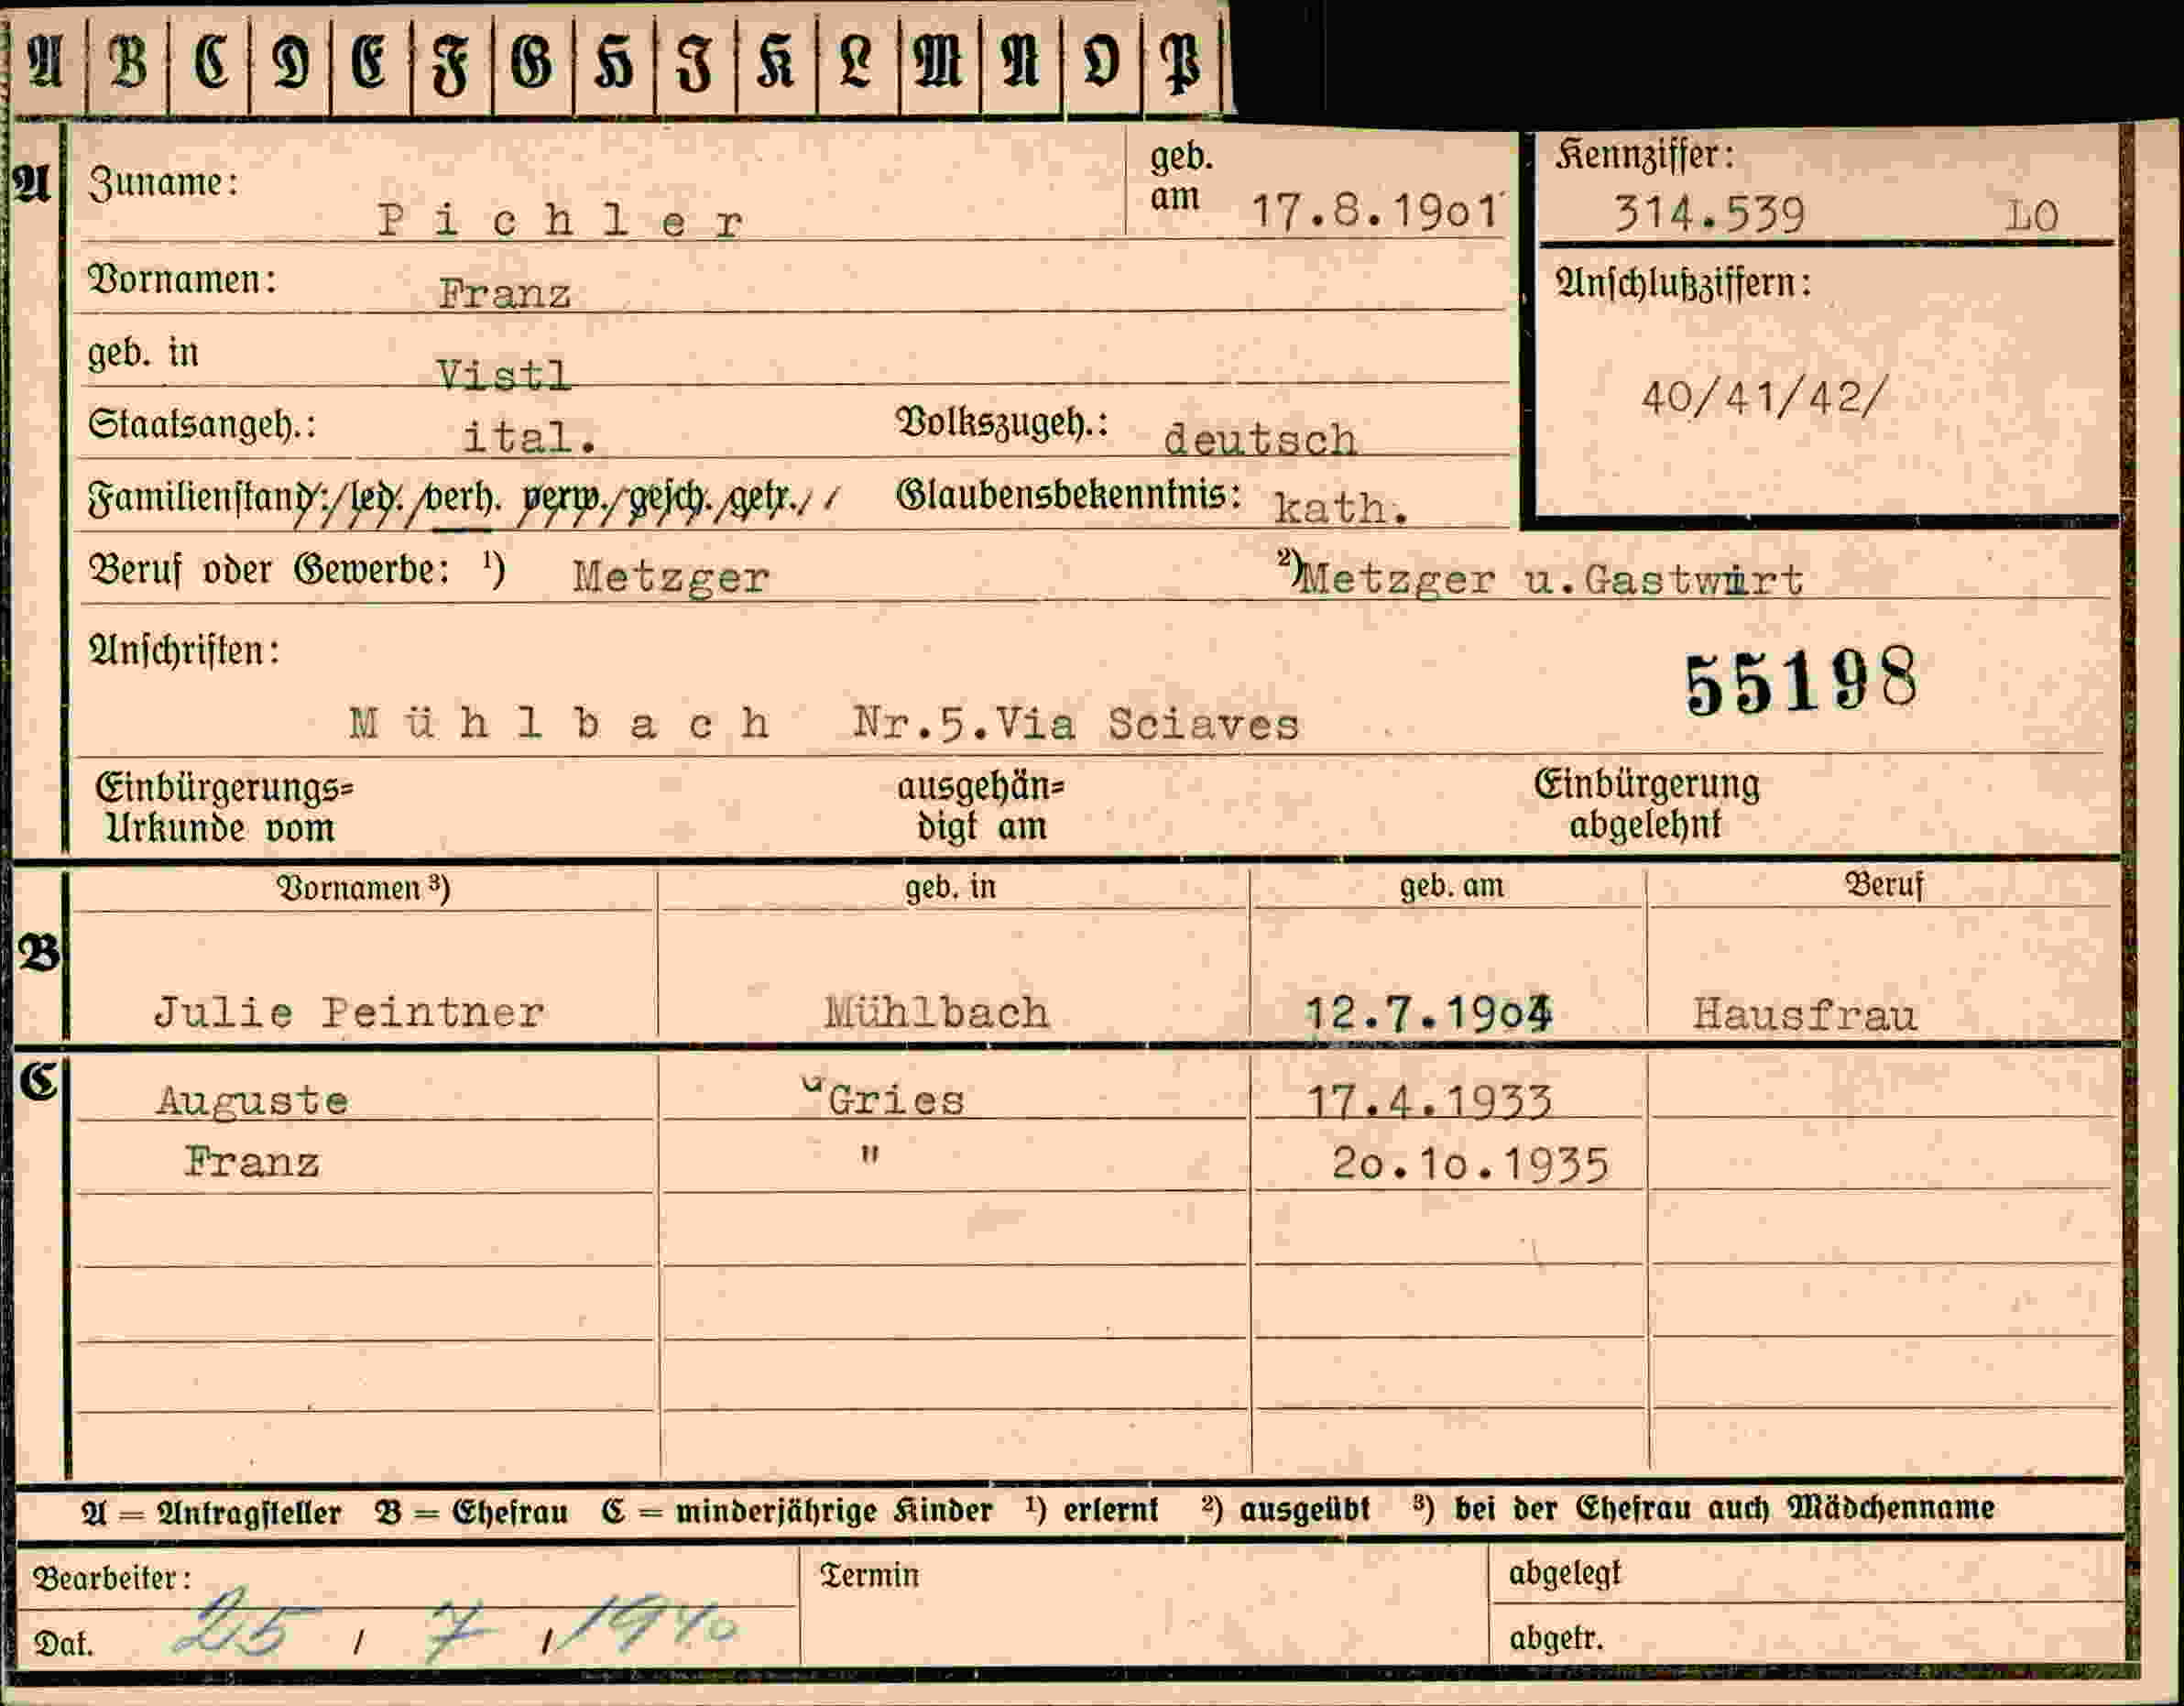 A B C D E F G H J K L M N O P
A Zuname: Pichler geb. am 17.8.19o1 Kennziffer: 314.539 LO
Vornamen: Franz Anschlußziffern:
geb. in Vistl 40/41/42/
Staatsangeh.: ital. Volkszugeh.: deutsch
Familienstand: led. verh. verw. gesch. getr. Glaubensbekenntnis: kath.
Beruf oder Gewerbe: 1) Metzger 2) Metzger u.Gastwirt
Anschriften: 55198
Mühlbach Nr.5.Via Sciaves
Einbürgerungs= ausgehän= Einbürgerung
Urkunde vom digt am abgelehnt
Vornamen 3) geb. in geb. am Beruf
B
Julie Peintner Mühlbach 12.7.19o4 Hausfrau
C Auguste Gries 17.4.1933
Franz " 2o.1o.1935
A = Antragsteller B = Ehefrau C = minderjährige Kinder 1) erlernt 2) ausgeübt 3) bei der Ehefrau auch Mädchenname
Bearbeiter: Termin abgelegt
Dat. 25 / 7 / 1940 abgetr.